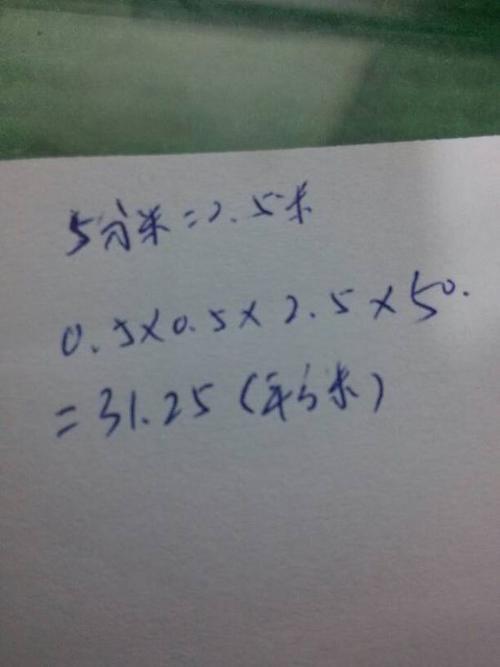 5分米=0.5米
0.5×0.5×2.5×50.
=31.25(平方米)